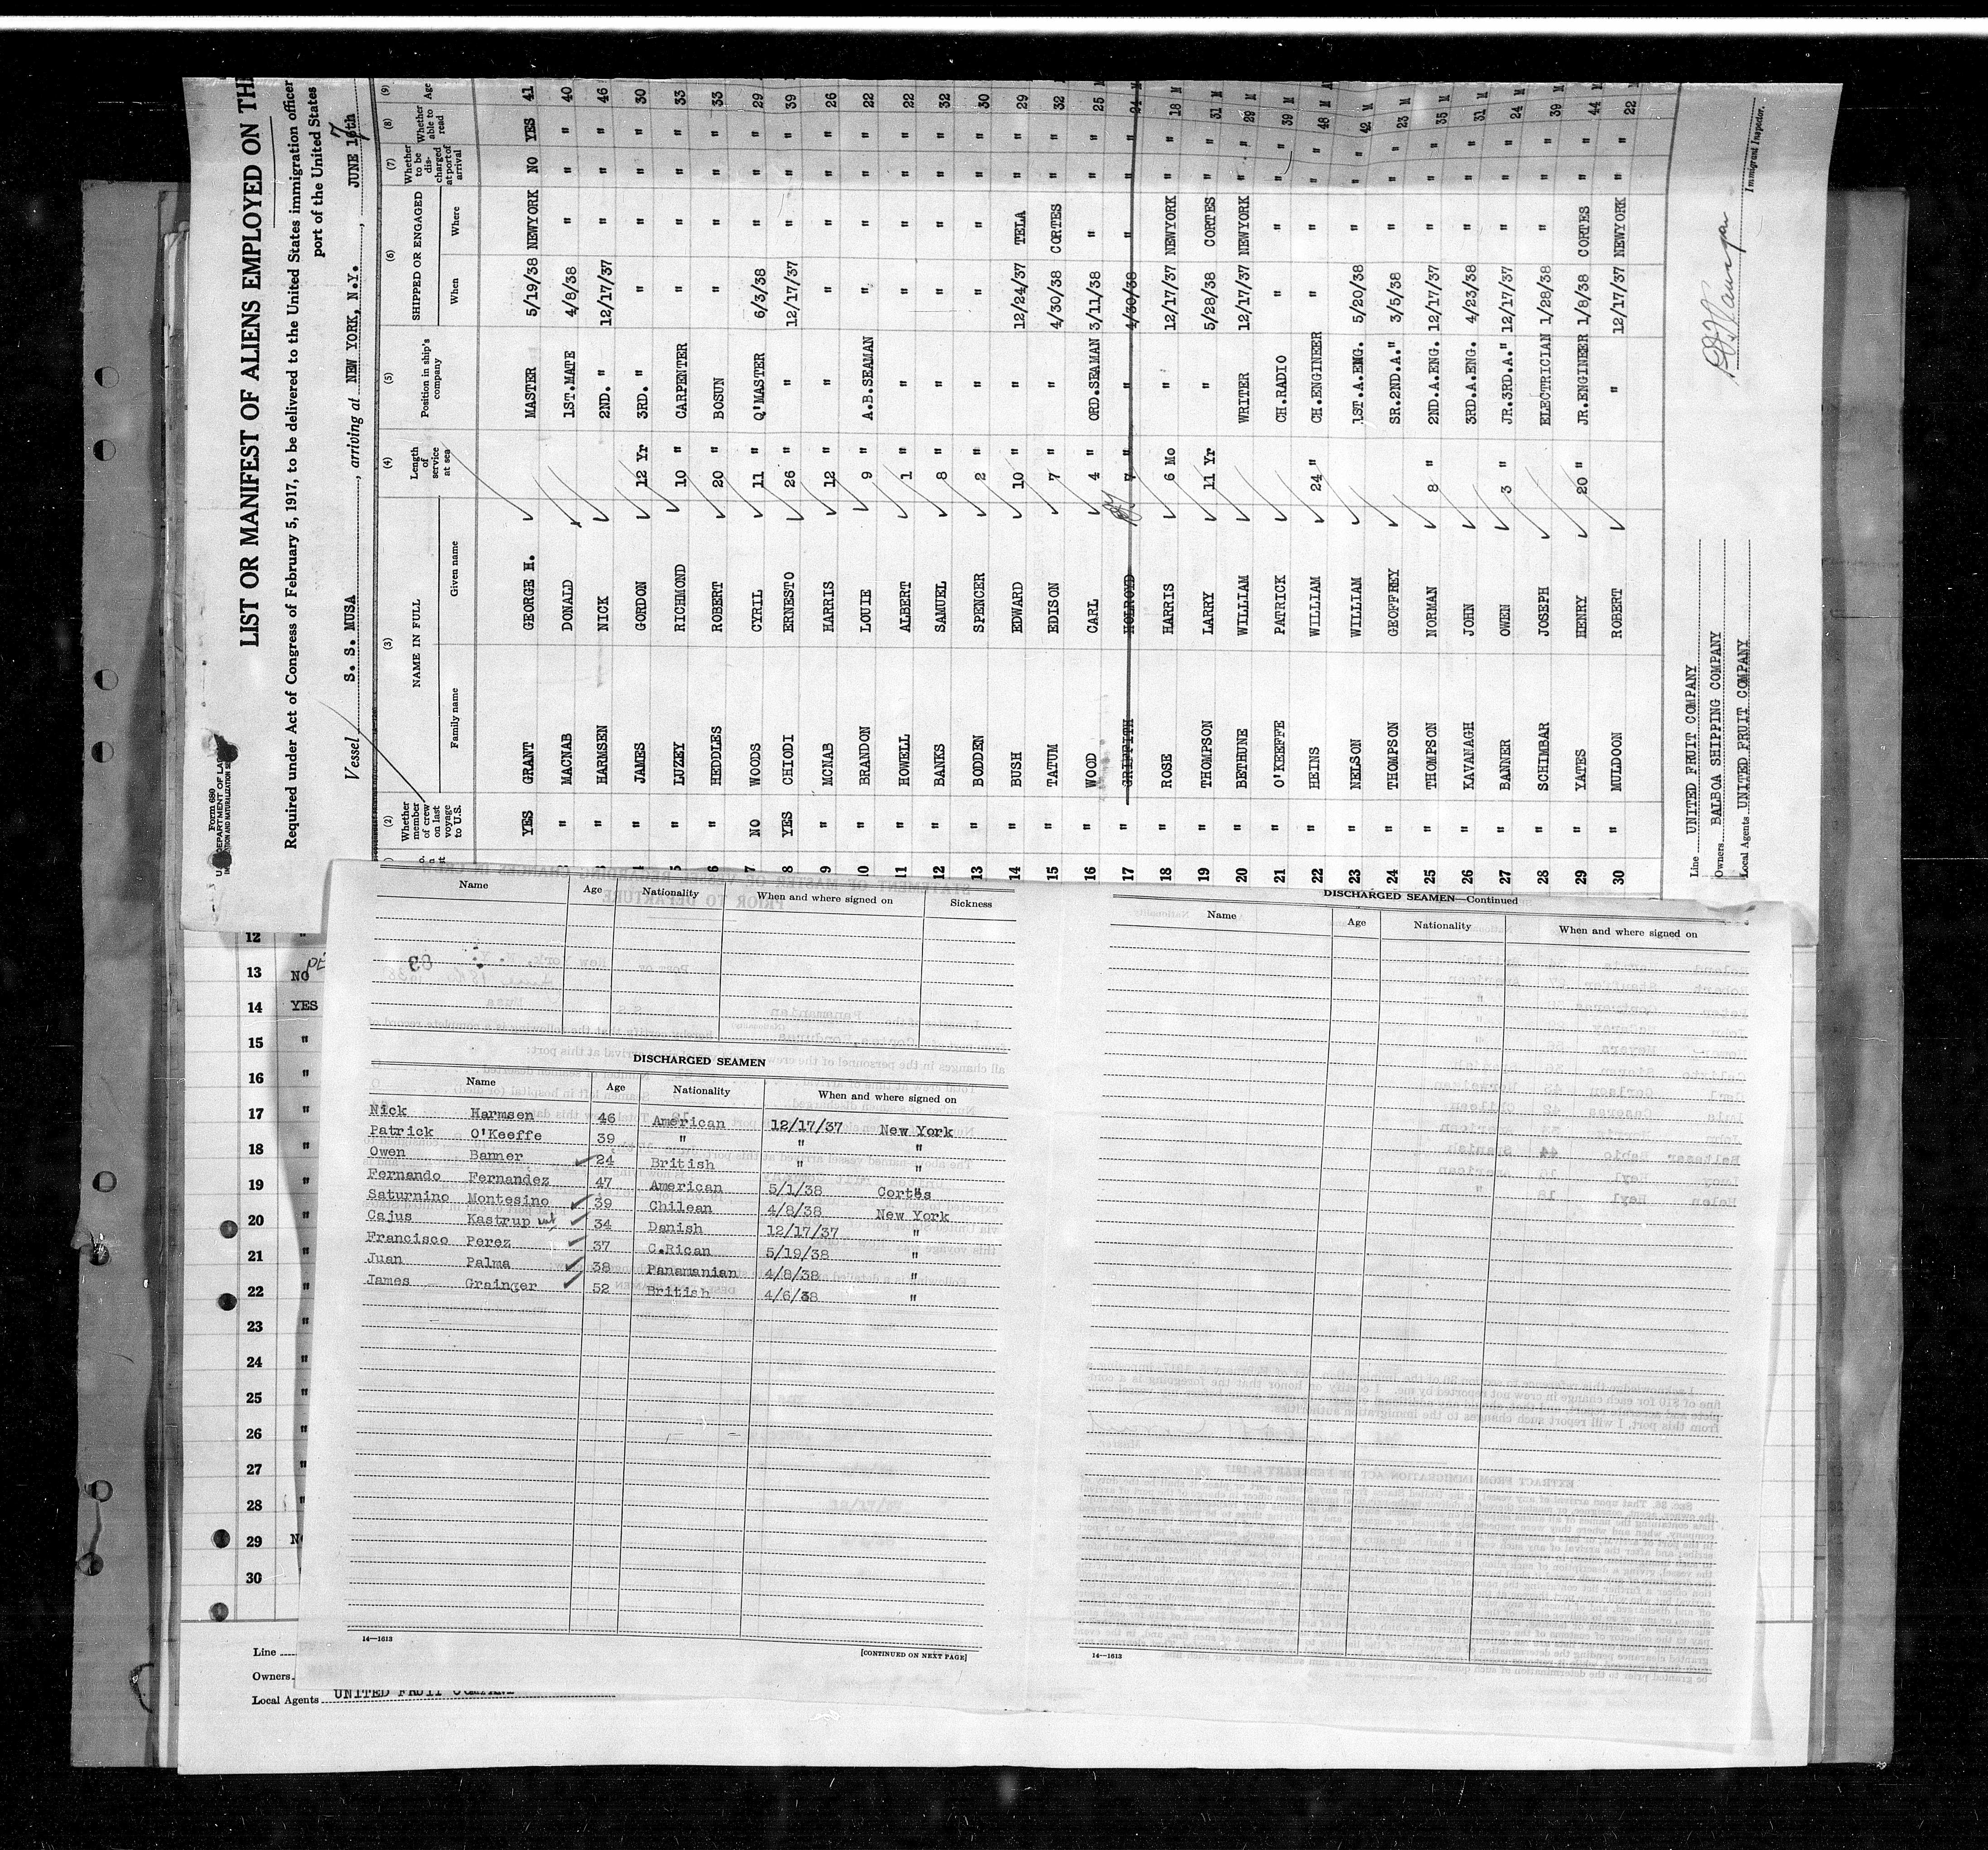 Form 680
U. S. DEPARTMENT OF LABOR
IMMIGRATION AND NATURALIZATION SERVICE
LIST OR MANIFEST OF ALIENS EMPLOYED ON THE
Required under Act of Congress of February 5, 1917, to be delivered to the United States immigration officer
port of the United States
Vessel S. S. MUSA, arriving at NEW YORK, N.Y., JUNE 17th
(2) (3) (4) (5) (6) (7) (8) (9)
Whether member of crew on last voyage to U.S. NAME IN FULL Family name Given name Length of service at sea Position in ship's company SHIPPED OR ENGAGED When Where Whether to be discharged at port of arrival Whether able to read Age
YES GRANT GEORGE H. MASTER 5/19/38 NEWYORK NO YES 41
" MACNAB DONALD 1ST.MATE 4/8/38 " " " 40
" HARMSEN NICK 2ND. " 12/17/37 " " " 46
" JAMES GORDON 12 Yr 3RD. " " " " " 30
5 " LUZEY RICHMOND 10 " CARPENTER " " " " 33
6 " HEDDLES ROBERT 20 " BOSUN " " " " 33
7 NO WOODS CYRIL 11 " Q'MASTER 6/3/38 " " " 29
8 YES CHIODI ERNESTO 26 " " 12/17/37 " " " 39
9 " MCNAB HARRIS 12 " " " " " " 26
10 " BRANDON LOUIE 9 " A.B.SEAMAN " " " " 22
11 " HOWELL ALBERT 1 " " " " " " 22
12 " BANKS SAMUEL 8 " " " " " " 32
13 " BODDEN SPENCER 2 " " " " " " 30
14 " BUSH EDWARD 10 " " 12/24/37 TELA " " 29
15 " TATUM EDISON 7 " " 4/30/38 CORTES " " 32
16 " WOOD CARL 4 " ORD.SEAMAN 3/11/38 " " " 25 M
17 " GRIFFITH HOLROD 7 " " 4/30/38 " " " 24 M
18 " ROSE HARRIS 6 Mo " 12/17/37 NEWYORK " " 18 M
19 " THOMPSON LARRY 11 Yr " 5/28/38 CORTES " " 31 M
20 " BETHUNE WILLIAM WRITER 12/17/37 NEWYORK " " 29 M
21 " O'KEEFFE PATRICK CH.RADIO " " " " 39 M
22 " HEINS WILLIAM 24 " CH.ENGINEER " " " " 48 M
23 " NELSON WILLIAM 1ST.A.ENG. 5/20/38 " " " 42 M
24 " THOMPSON GEOFFREY SR.2ND.A." 3/5/38 " " " 23 M
25 " THOMPSON NORMAN 8 " 2ND.A.ENG. 12/17/37 " " " 35 M
26 " KAVANAGH JOHN 3RD.A.ENG. 4/23/38 " " " 31 M
27 " BANNER OWEN 3 " JR.3RD.A." 12/17/37 " " " 24 M
28 " SCHIMBAR JOSEPH ELECTRICIAN 1/28/38 " " " 39 M
29 " YATES HENRY 20 " JR.ENGINEER 1/8/38 CORTES " " 44 M
30 " MULDOON ROBERT " 12/17/37 NEWYORK " " 22 M
Line UNITED FRUIT COMPANY
Owners BALBOA SHIPPING COMPANY
Local Agents UNITED FRUIT COMPANY
Immigrant Inspector.
12 "
13 NO
14 YES
15 "
16 "
17 "
18 "
19 "
20 "
21 "
22 "
23 "
24 "
25 "
26 "
27 "
28 "
29 NO
30
Line
Owners
Local Agents UNITED FRUIT COMPANY
Name Age Nationality When and where signed on Sickness
DISCHARGED SEAMEN
Name Age Nationality When and where signed on
Nick Harmsen 46 American 12/17/37 New York
Patrick O'Keeffe 39 " " "
Owen Banner 24 British " "
Fernando Fernandez 47 American 5/1/38 Cortes
Saturnino Montesino 39 Chilean 4/8/38 New York
Cajus Kastrup 34 Danish 12/17/37 "
Francisco Perez 37 C.Rican 5/19/38 "
Juan Palma 38 Panamanian 4/8/38 "
James Grainger 52 British 4/6/38 "
14—1613
[CONTINUED ON NEXT PAGE]
DISCHARGED SEAMEN—Continued
Name Age Nationality When and where signed on
14—1613